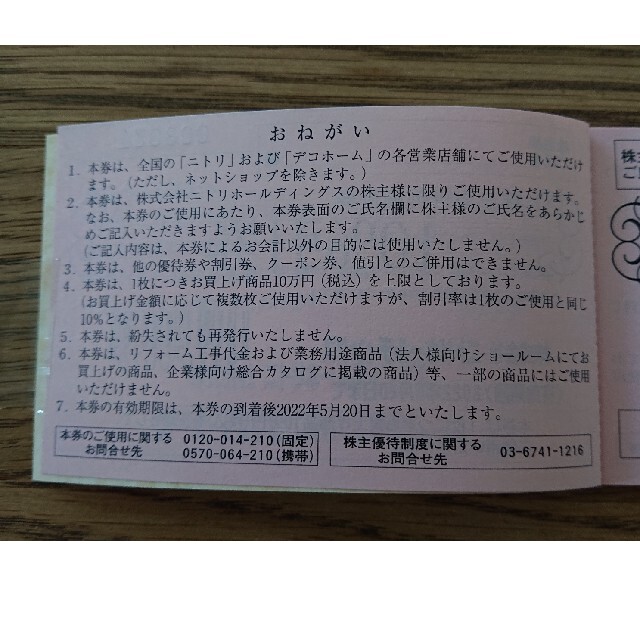 おねがい
1. 本券は、全国の「ニトリ」および「デコホーム」の各営業店舗にてご使用いただけ
ます。（ただし、ネットショップを除きます。）
2. 本券は、株式会社ニトリホールディングスの株主様に限りご使用いただけます。
なお、本券のご使用にあたり、本券表面のご氏名欄に株主様のご氏名をあらかじ
めご記入いただきますようお願いいたします。
（ご記入内容は、本券によるお会計以外の目的には使用いたしません。）
3. 本券は、他の優待券や割引券、クーポン券、値引とのご併用はできません。
4. 本券は、1枚につきお買上げ商品10万円（税込）を上限としております。
（お買上げ金額に応じて複数枚ご使用いただけますが、割引率は1枚のご使用と同じ
10%となります。）
5. 本券は、紛失されても再発行いたしません。
6. 本券は、リフォーム工事代金および業務用途商品（法人様向けショールームにてお
買上げの商品、企業様向け総合カタログに掲載の商品）等、一部の商品にはご使用
いただけません。
7. 本券の有効期限は、本券の到着後2022年5月20日までといたします。
本券のご使用に関する
お問合せ先
0120-014-210（固定）
0570-064-210（携帯）
株主優待制度に関する
お問合せ先
03-6741-1216
株
ご